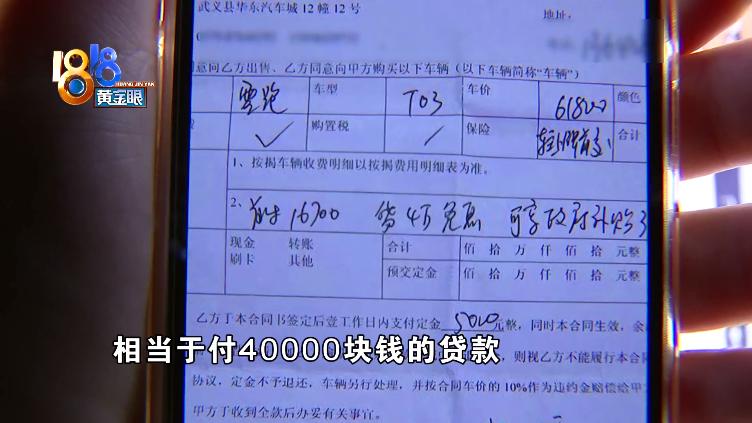 武义县华东汽车城12幢12号
地址:
同意向乙方出售、乙方同意向甲方购买以下车辆（以下车辆简称"车辆"）
零跑 车型 T03 车价 61800 颜色
购置税 / 保险 合计
1、按揭车辆收费明细以按揭费用明细表为准。
2、首付 16700 贷4万免息 可享政府补贴
现金 转账 合计 佰 拾 万 仟 佰 拾 元整
刷卡 其他 预交定金 佰 拾 万 仟 佰 拾 元整
乙方于本合同书签定后壹工作日内支付定金 5000 元整，同时本合同生效，余
则视乙方不能履行本合同
协议，定金不予退还，车辆另行处理，并按合同车价的10%作为违约金赔偿给甲
甲方于收到全款后办妥有关事宜。
1818
HUANG JIN YAN
黄金眼
相当于付40000块钱的贷款